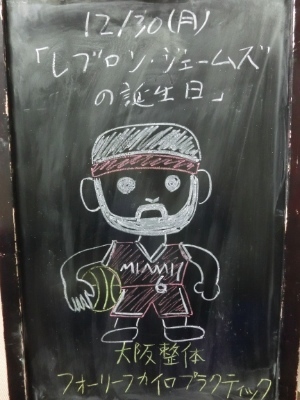 12/30(月)
「レブロン・ジェームズ
の誕生日」
MIAMI
6
大阪整体
フォーリーフカイロプラクティック